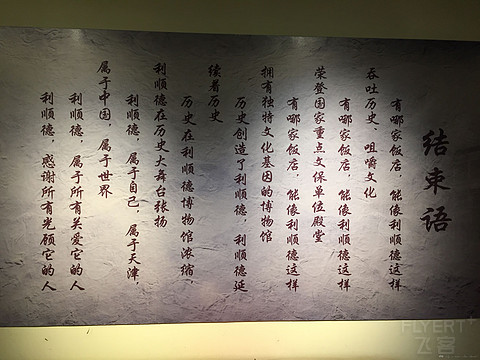 结束语
有哪家饭店，能像利顺德这样
吞吐历史、咀嚼文化
有哪家饭店，能像利顺德这样
荣登国家重点文保单位殿堂
有哪家饭店，能像利顺德这样
拥有独特文化基因的博物馆
历史创造了利顺德，利顺德延
续着历史
历史在利顺德博物馆浓缩，
利顺德在历史大舞台张扬
利顺德，属于自己，属于天津，
属于中国，属于世界
利顺德，属于所有关爱它的人
利顺德，感谢所有光顾它的人
FLYERT
飞客